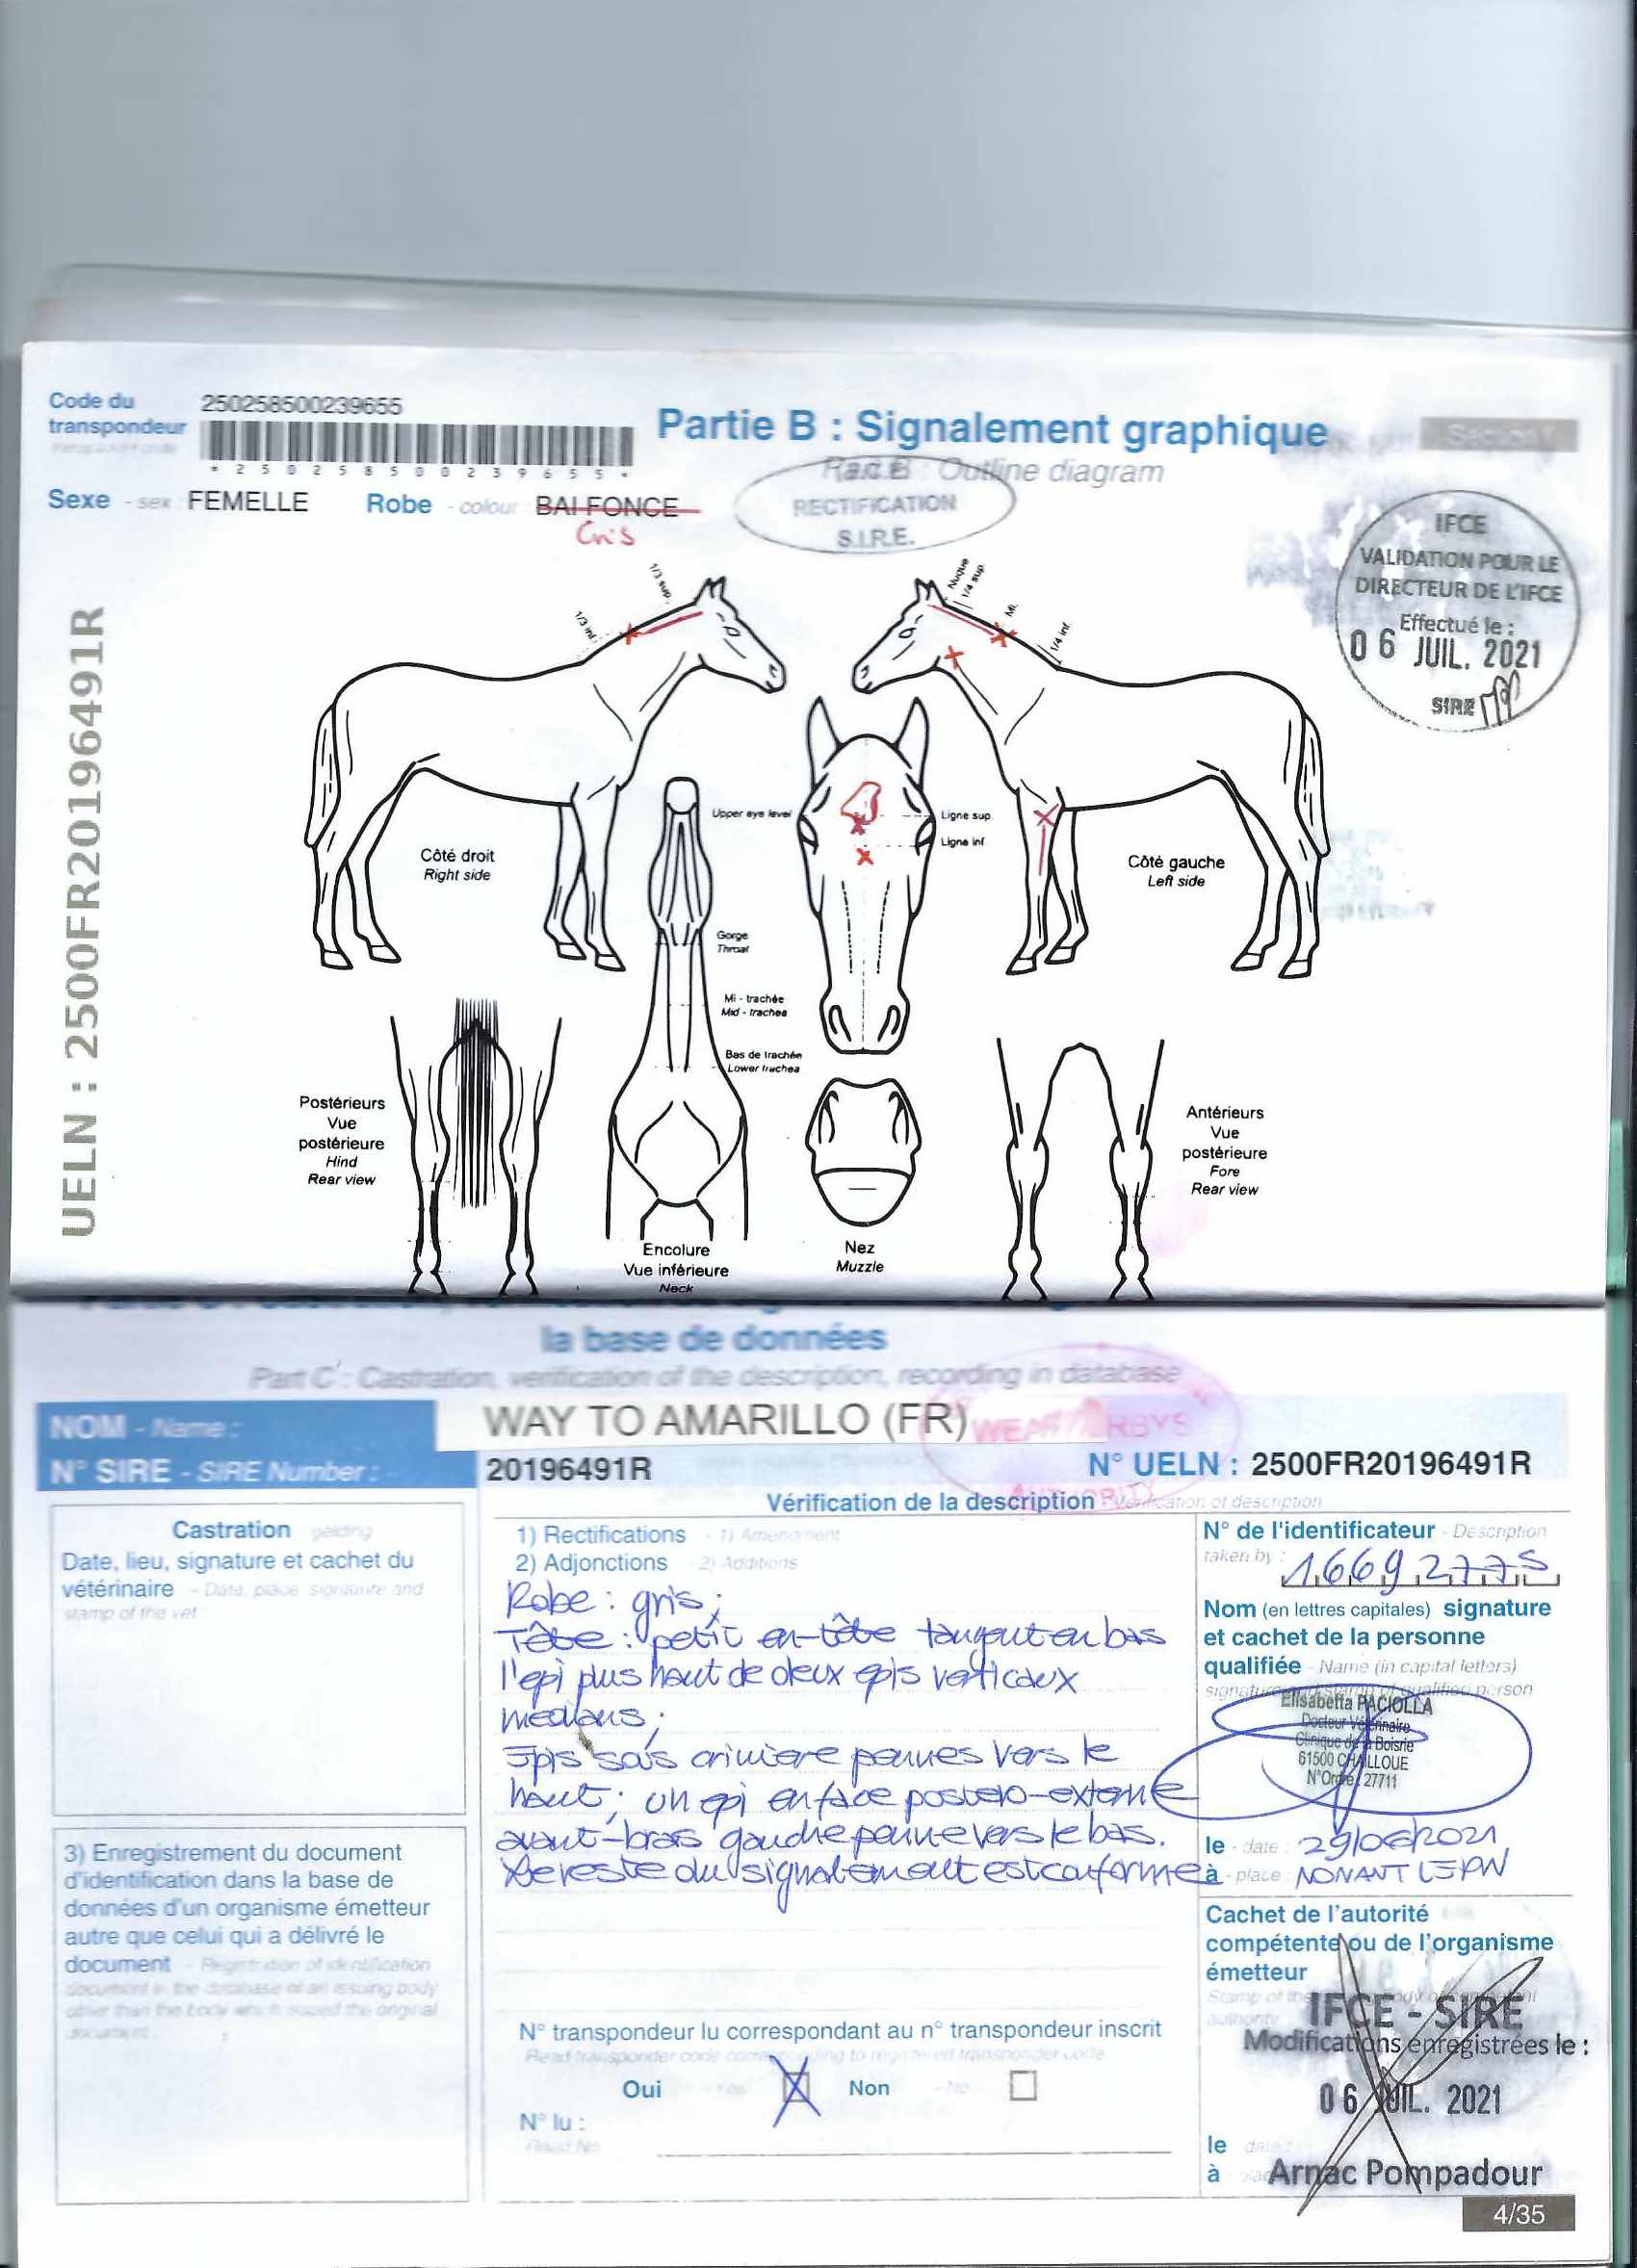 Code du
transpondeur
250258500239655
* 2 5 0 2 5 8 5 0 0 2 3 9 6 5 5 *
Partie B : Signalement graphique
Part B : Outline diagram
Sexe - sex FEMELLE Robe - colour BAI FONCE
Gris
RECTIFICATION
S.I.R.E.
IFCE
VALIDATION POUR LE
DIRECTEUR DE L'IFCE
Effectué le :
06 JUIL. 2021
SIRE
UELN : 2500FR20196491R
1/3 inf.
1/3 sup.
Nuque
1/4 sup.
Mi.
1/4 inf.
Upper eye level
Ligne sup.
Ligne inf
Côté droit
Right side
Côté gauche
Left side
Gorge
Throat
Mi - trachée
Mid - trachea
Bas de trachée
Lower trachea
Postérieurs
Vue
postérieure
Hind
Rear view
Antérieurs
Vue
postérieure
Fore
Rear view
Encolure
Vue inférieure
Neck
Nez
Muzzle
la base de données
Part C : Castration, verification of the description, recording in database
NOM - Name :
WAY TO AMARILLO (FR)
WEATHERBYS
AUTHORITY
N° SIRE - SIRE Number :
20196491R
N° UELN : 2500FR20196491R
Vérification de la description - Verification of description
Castration gelding
Date, lieu, signature et cachet du
vétérinaire - Date, place signature and
stamp of the vet
1) Rectifications - 1) Amendment
2) Adjonctions - 2) Additions
Robe : gris ;
Tête : petit en-tête tangent en bas
l'epi plus haut de deux epis verticaux
medians ;
Epis sous crinière pennes vers le
haut ; un epi en face postero-externe
avant-bras gauche penne vers le bas.
Le reste du signalement est conforme
N° de l'identificateur - Description
taken by :
16692777S
Nom (en lettres capitales) signature
et cachet de la personne
qualifiée - Name (in capital letters)
signature and stamp of qualified person
Elisabetta PACIOLLA
Docteur Vétérinaire
Clinique de la Boisrie
61500 CHAILLOUE
N°Ordre : 27711
le - date : 29/06/2021
à - place : NONANT LE PIN
3) Enregistrement du document
d'identification dans la base de
données d'un organisme émetteur
autre que celui qui a délivré le
document - Registration of identification
document in the database of an issuing body
other than the body which issued the original
document.
Cachet de l'autorité
compétente ou de l'organisme
émetteur
IFCE - SIRE
Modifications enregistrées le :
06 JUIL. 2021
N° transpondeur lu correspondant au n° transpondeur inscrit
Read transponder code corresponding to registered transponder code
Oui - Yes Non - No
N° lu :
Read No
le date :
à
Arnac Pompadour
4/35